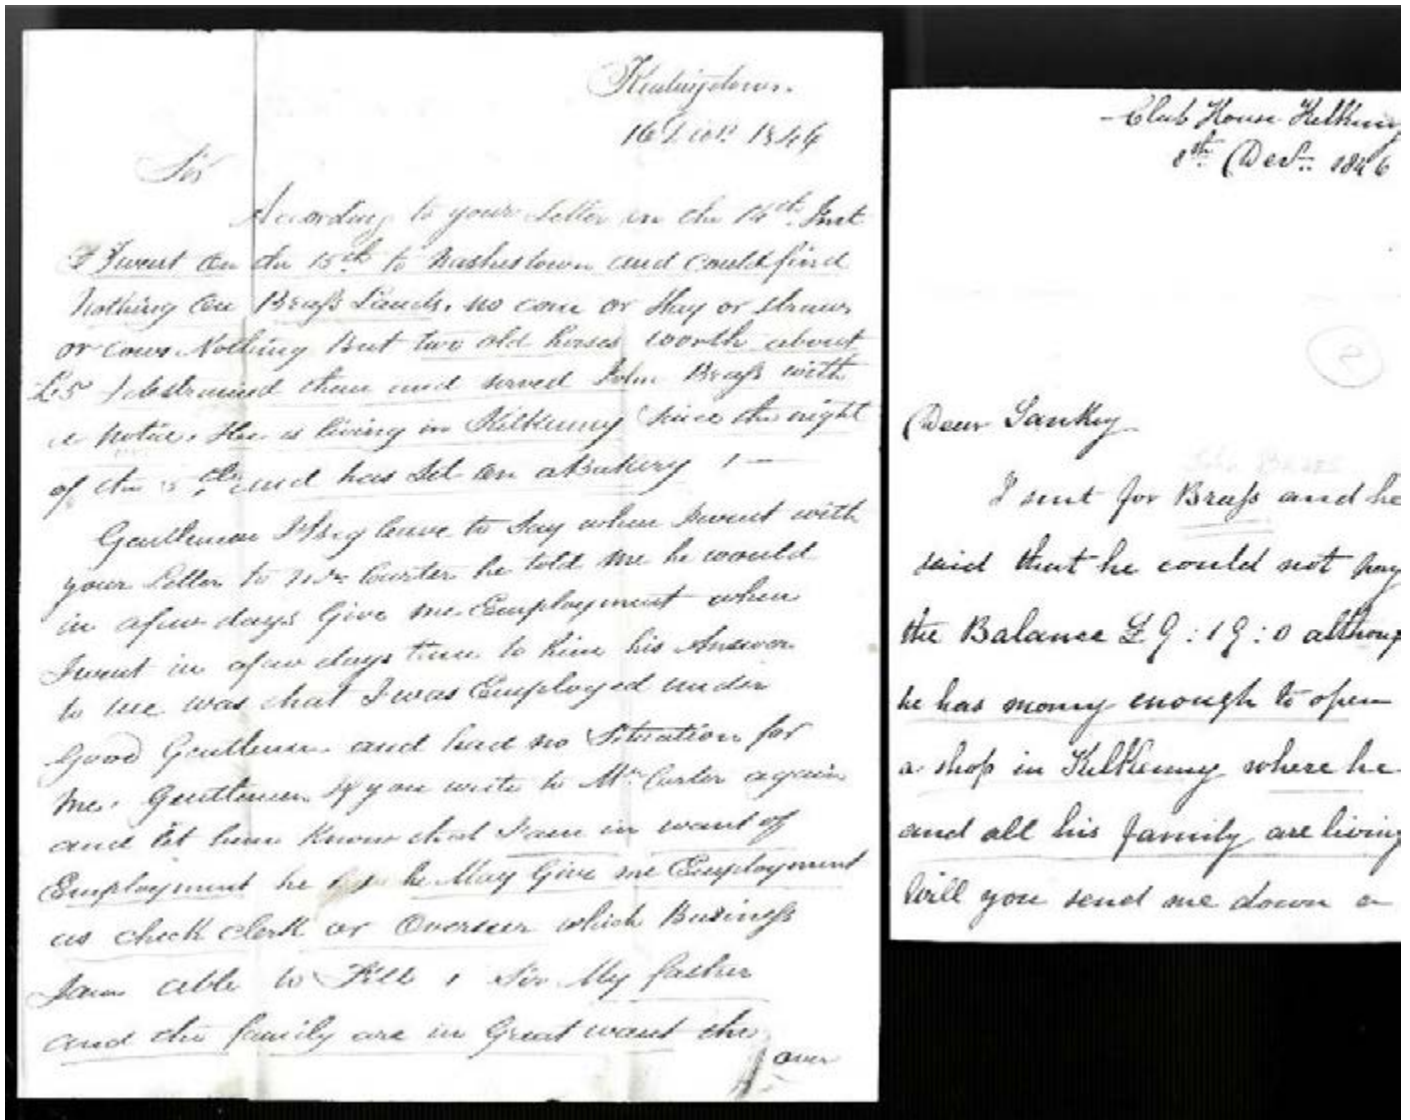 Keatingstown.
16 Decr. 1846
Sir
According to your Letter in the 14th Inst
I went on the 15th to Nashestown and could find
Nothing on Brass Lands. no corn or Hay or straw
or cows Nothing But two old horses worth about
£5 I distrained them and served John Brass with
a notice. He is living in Kilkenny since the night
of the 5th and has Set on a Bakery
Gentlemen I Beg leave to Say when I went with
your Letter to Mr Curter he told me he would
in a few days Give me Employment when
I went in a few days time to him his Answer
to me was that I was Employed under
Good Gentlemen and had no Situation for
me. Gentlemen If you write to Mr. Curter again
and let him Know that I am in want of
Employment he he May Give me Employment
as check clerk or Overseer which Business
I am able to Fill Sir My father
and the family are in Great want the
over
Club House Kilkenny
8th Decr. 1846
2
Dear Sankey
John BRASS
I sent for Brass and he
said that he could not pay
the Balance £9:19:0 althoug
he has money enough to open
a shop in Kilkenny where he
and all his family are living
Will you send me down a